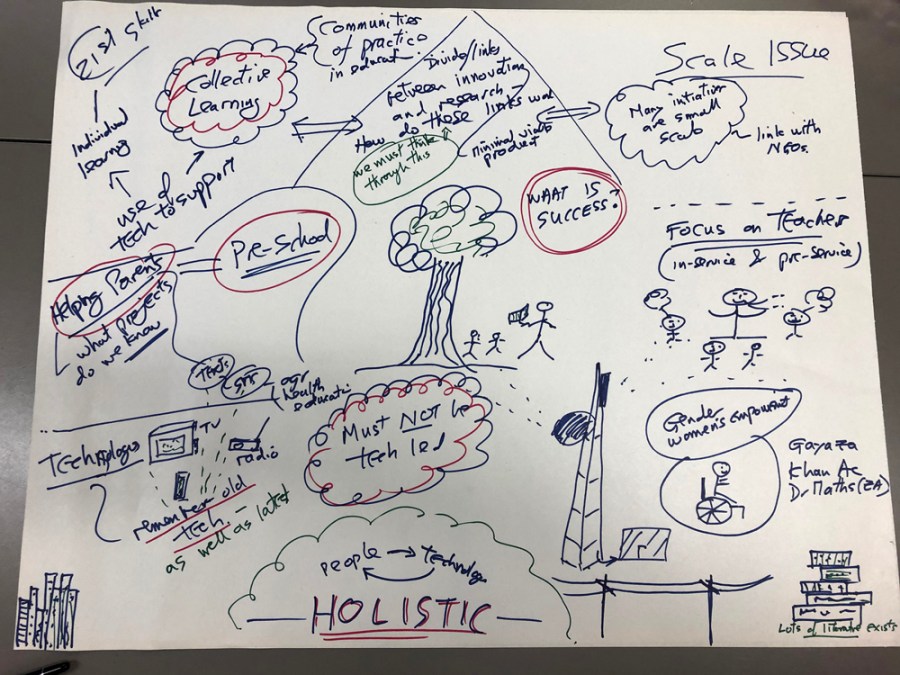 21st Skills
Individual
learning
Collective
Learning
Communities
of practice
in educati
Divide/links
between innovation
and research -
How do those links wor
we must think
through this
minimal viable
product
Scale Issue
Many initiative
are small
scale
link with
NGOs.
use of
tech to support
Pre-School
WHAT IS
SUCCESS?
Focus on Teacher
(in-service & pre-service)
Helping Parents
what projects
do we know
Texts
SMS
agr
health
educati
Technology
TV
radio
remember old
tech -
as well as latest
Must NOT be
tech led
Gender
women's
Gayaza
Khan Ac
Dr Maths (ZA)
people
technology
HOLISTIC
Lots of literature exists